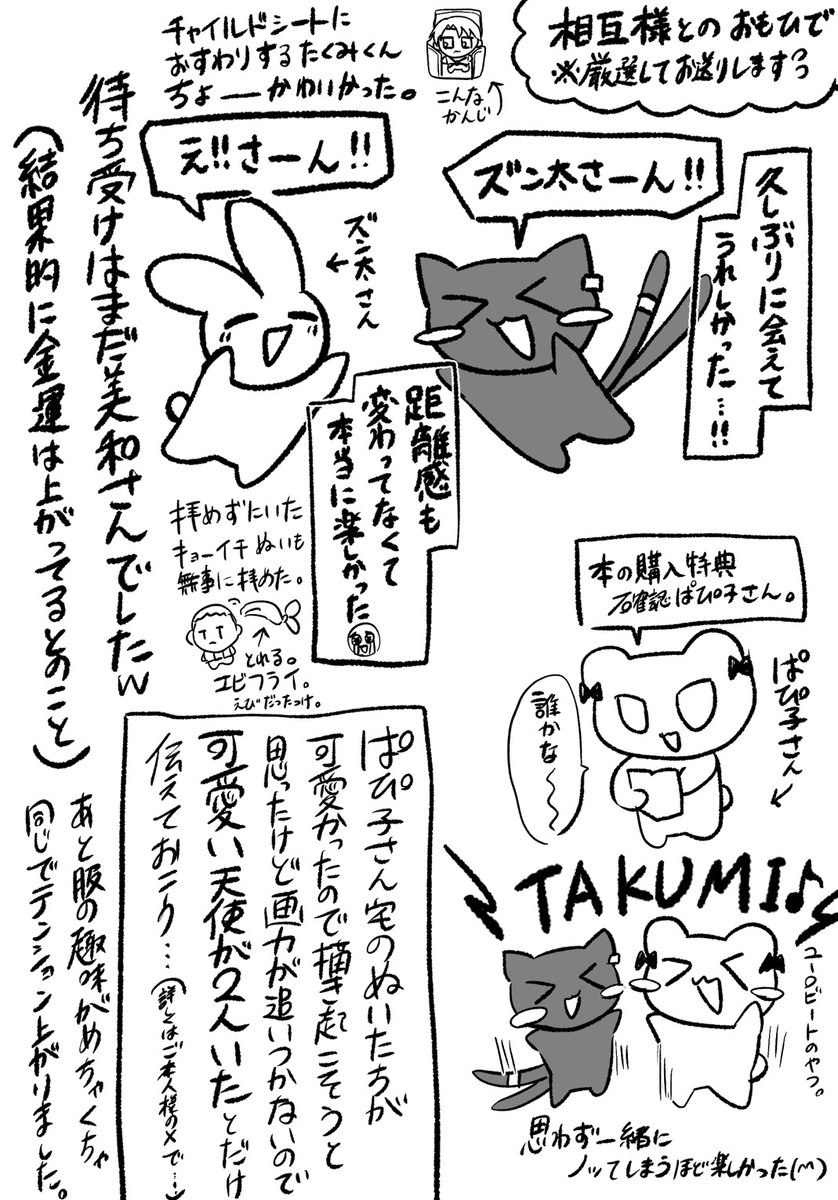 相互様とのおもひで
※厳選してお送りします
チャイルドシートに
おすわりするたくみくん
ちょーーかわいかった。
こんな
かんじ
久しぶりに会えて
うれしかった…!!
ズン太さーん!!
え!!さーん!!
ズン太さん
距離感も
変わってなくて
本当に楽しかった
待ち受けはまだ美和さんでしたw
(結果的に金運は上がってるとのこと)
拝めずにいた
キョーイチぬいも
無事に拝めた。
とれる。
エビフライ。
えびだったっけ。
本の購入特典
確認ぱぴ子さん。
ぱぴ子さん
誰かな〜〜
ぱぴ子さん宅のぬいたちが
可愛かったので描き起こそうと
思ったけど画力が追いつかないので
可愛い天使が2人いたとだけ
伝えておこう…(詳しくはご本人様のXで…)
あと服の趣味がめちゃくちゃ
同じでテンション上がりました。
TAKUMI♪
ユーロビートのやつ。
思わず一緒に
ノッてしまうほど楽しかった(^^)